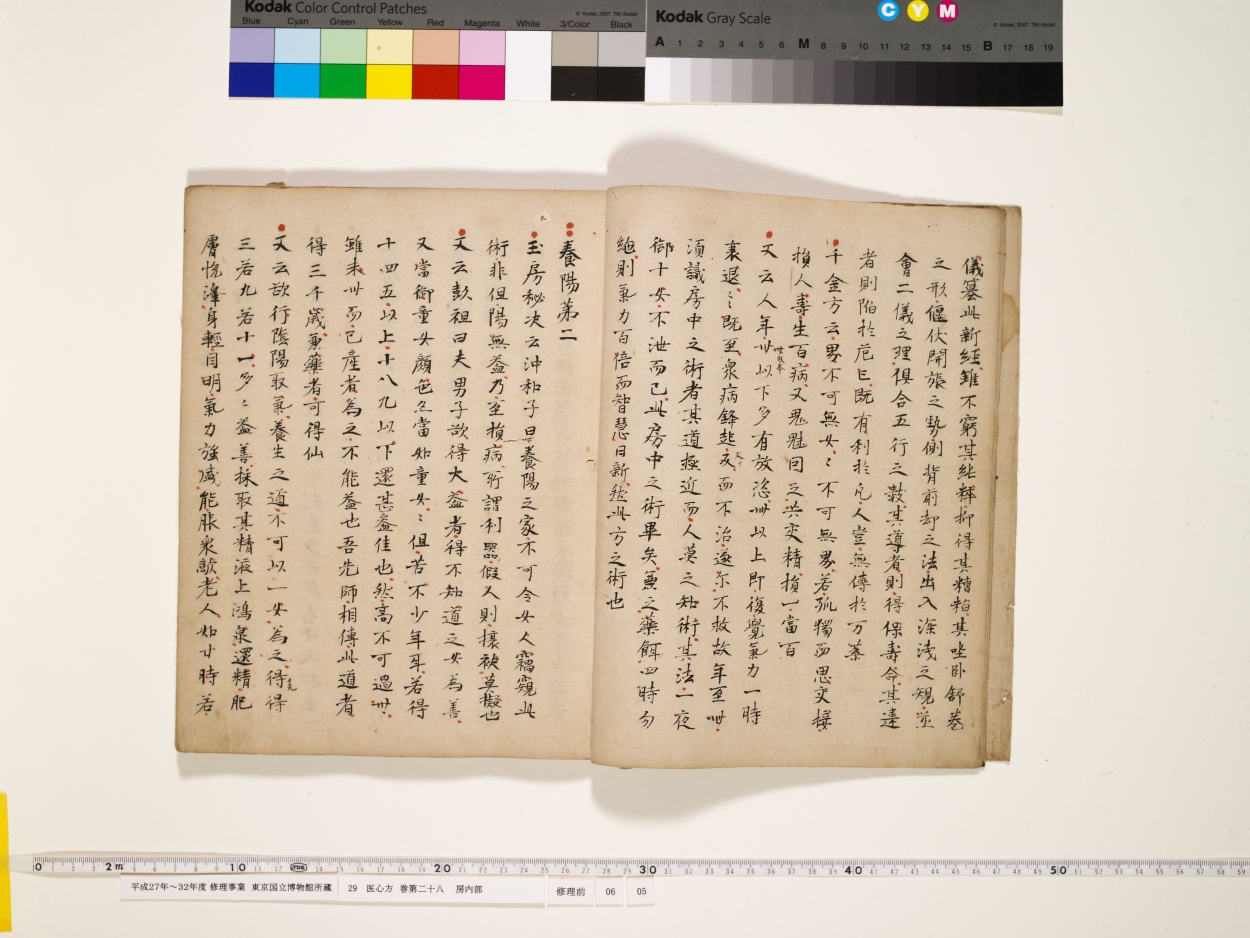 Kodak Color Control Patches
© Kodak, 2007 TM: Kodak
Blue Cyan Green Yellow Red Magenta White 3/Color Black
Kodak Gray Scale
C Y M
© Kodak, 2007 TM: Kodak
A 1 2 3 4 5 6 M 8 9 10 11 12 13 14 15 B 17 18 19
儀纂此新經雖不窮其純粹抑得其糟粕其坐卧舒卷
之形偃伏開張之勢側背前却之法出入深淺之規並
會二儀之理俱合五行之數其導者則得保壽命其違
者則陷於危亡既有利於凡人豈無傳於万葉
千金方云男不可無女〻不可無男若孤獨而思交接
損人壽生百病又鬼魅因之共交精損一當百
又云人年卌以下多有放恣卌以上即復覺氣力一時
衰退〻既至衆病鋒起久而不治遂尓不救故年至卌
須識房中之術者其道極近而人莫之知術其法一夜
御十女不泄而已此房中之術畢矣兼之藥餌四時勿
絶則氣力百倍而智慧日新然此方之術也
養陽第二
玉房秘决云沖和子曰養陽之家不可令女人竊窺此
術非但陽無益乃至損病所謂利器假人則攘袂莫擬也
又云彭祖曰夫男子欲得大益者得不知道之女為善
又當御童女顏色亦當如童女〻但苦不少年耳若得
十四五以上十八九以下還甚益佳也然高不可過卅
雖未卅而已產者為之不能益也吾先師相傳此道者
得三千歲兼藥者可得仙
又云欲行陰陽取氣養生之道不可以一女為之得得
三若九若十一多〻益善採取其精液上鴻泉還精肥
膚悅澤身輕目明氣力強盛能服衆敵老人如廿時若
平成27年～32年度 修理事業 東京国立博物館所蔵 29 医心方 巻第二十八 房内部 修理前 06 05